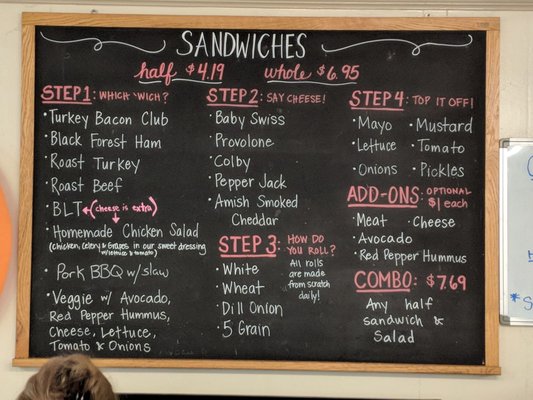 SANDWICHES
half $4.19 whole $6.95
STEP 1: WHICH 'WICH?
• Turkey Bacon Club
• Black Forest Ham
• Roast Turkey
• Roast Beef
• BLT (cheese is extra)
• Homemade Chicken Salad
(chicken, celery & grapes in our sweet dressing
w/lettuce & tomato)
• Pork BBQ w/slaw
• Veggie w/ Avocado,
Red Pepper Hummus,
Cheese, Lettuce,
Tomato & Onions
STEP 2: SAY CHEESE!
• Baby Swiss
• Provolone
• Colby
• Pepper Jack
• Amish Smoked
Cheddar
STEP 3: HOW DO
YOU ROLL?
All rolls
are made
from scratch
daily!
• White
• Wheat
• Dill Onion
• 5 Grain
STEP 4: TOP IT OFF!
• Mayo • Mustard
• Lettuce • Tomato
• Onions • Pickles
ADD-ONS: OPTIONAL
$1 each
• Meat • Cheese
• Avocado
• Red Pepper Hummus
COMBO: $7.69
Any half
sandwich &
Salad